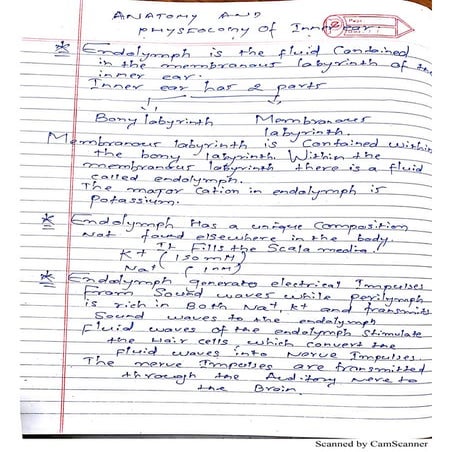 ANATOMY AND
PHYSIOLOGY OF Inner ear.
Page
* Endolymph is the fluid Contained
in the membranous labyrinth of the
inner ear.
Inner ear has 2 parts
Bony labyrinth Membranous
labyrinth.
Membranous labyrinth is Contained within
the bony labyrinth. Within the
membranous labyrinth there is a fluid
called endolymph.
The major Cation in endolymph is
Potassium.
* Endolymph Has a unique Composition
Not found elsewhere in the body.
It Fills the Scala media.
K+ (150 mM)
Na+ (1 mM)
* Endolymph generate electrical Impulses
From Sound waves while perilymph
is rich in Both Na+, K+ and transmits
Sound waves to the endolymph
Fluid waves of the endolymph stimulate
the Hair cells, which convert the
fluid waves into Nerve Impulses.
The nerve Impulses are transmitted
through the Auditory nerve to
the Brain.
Scanned by CamScanner